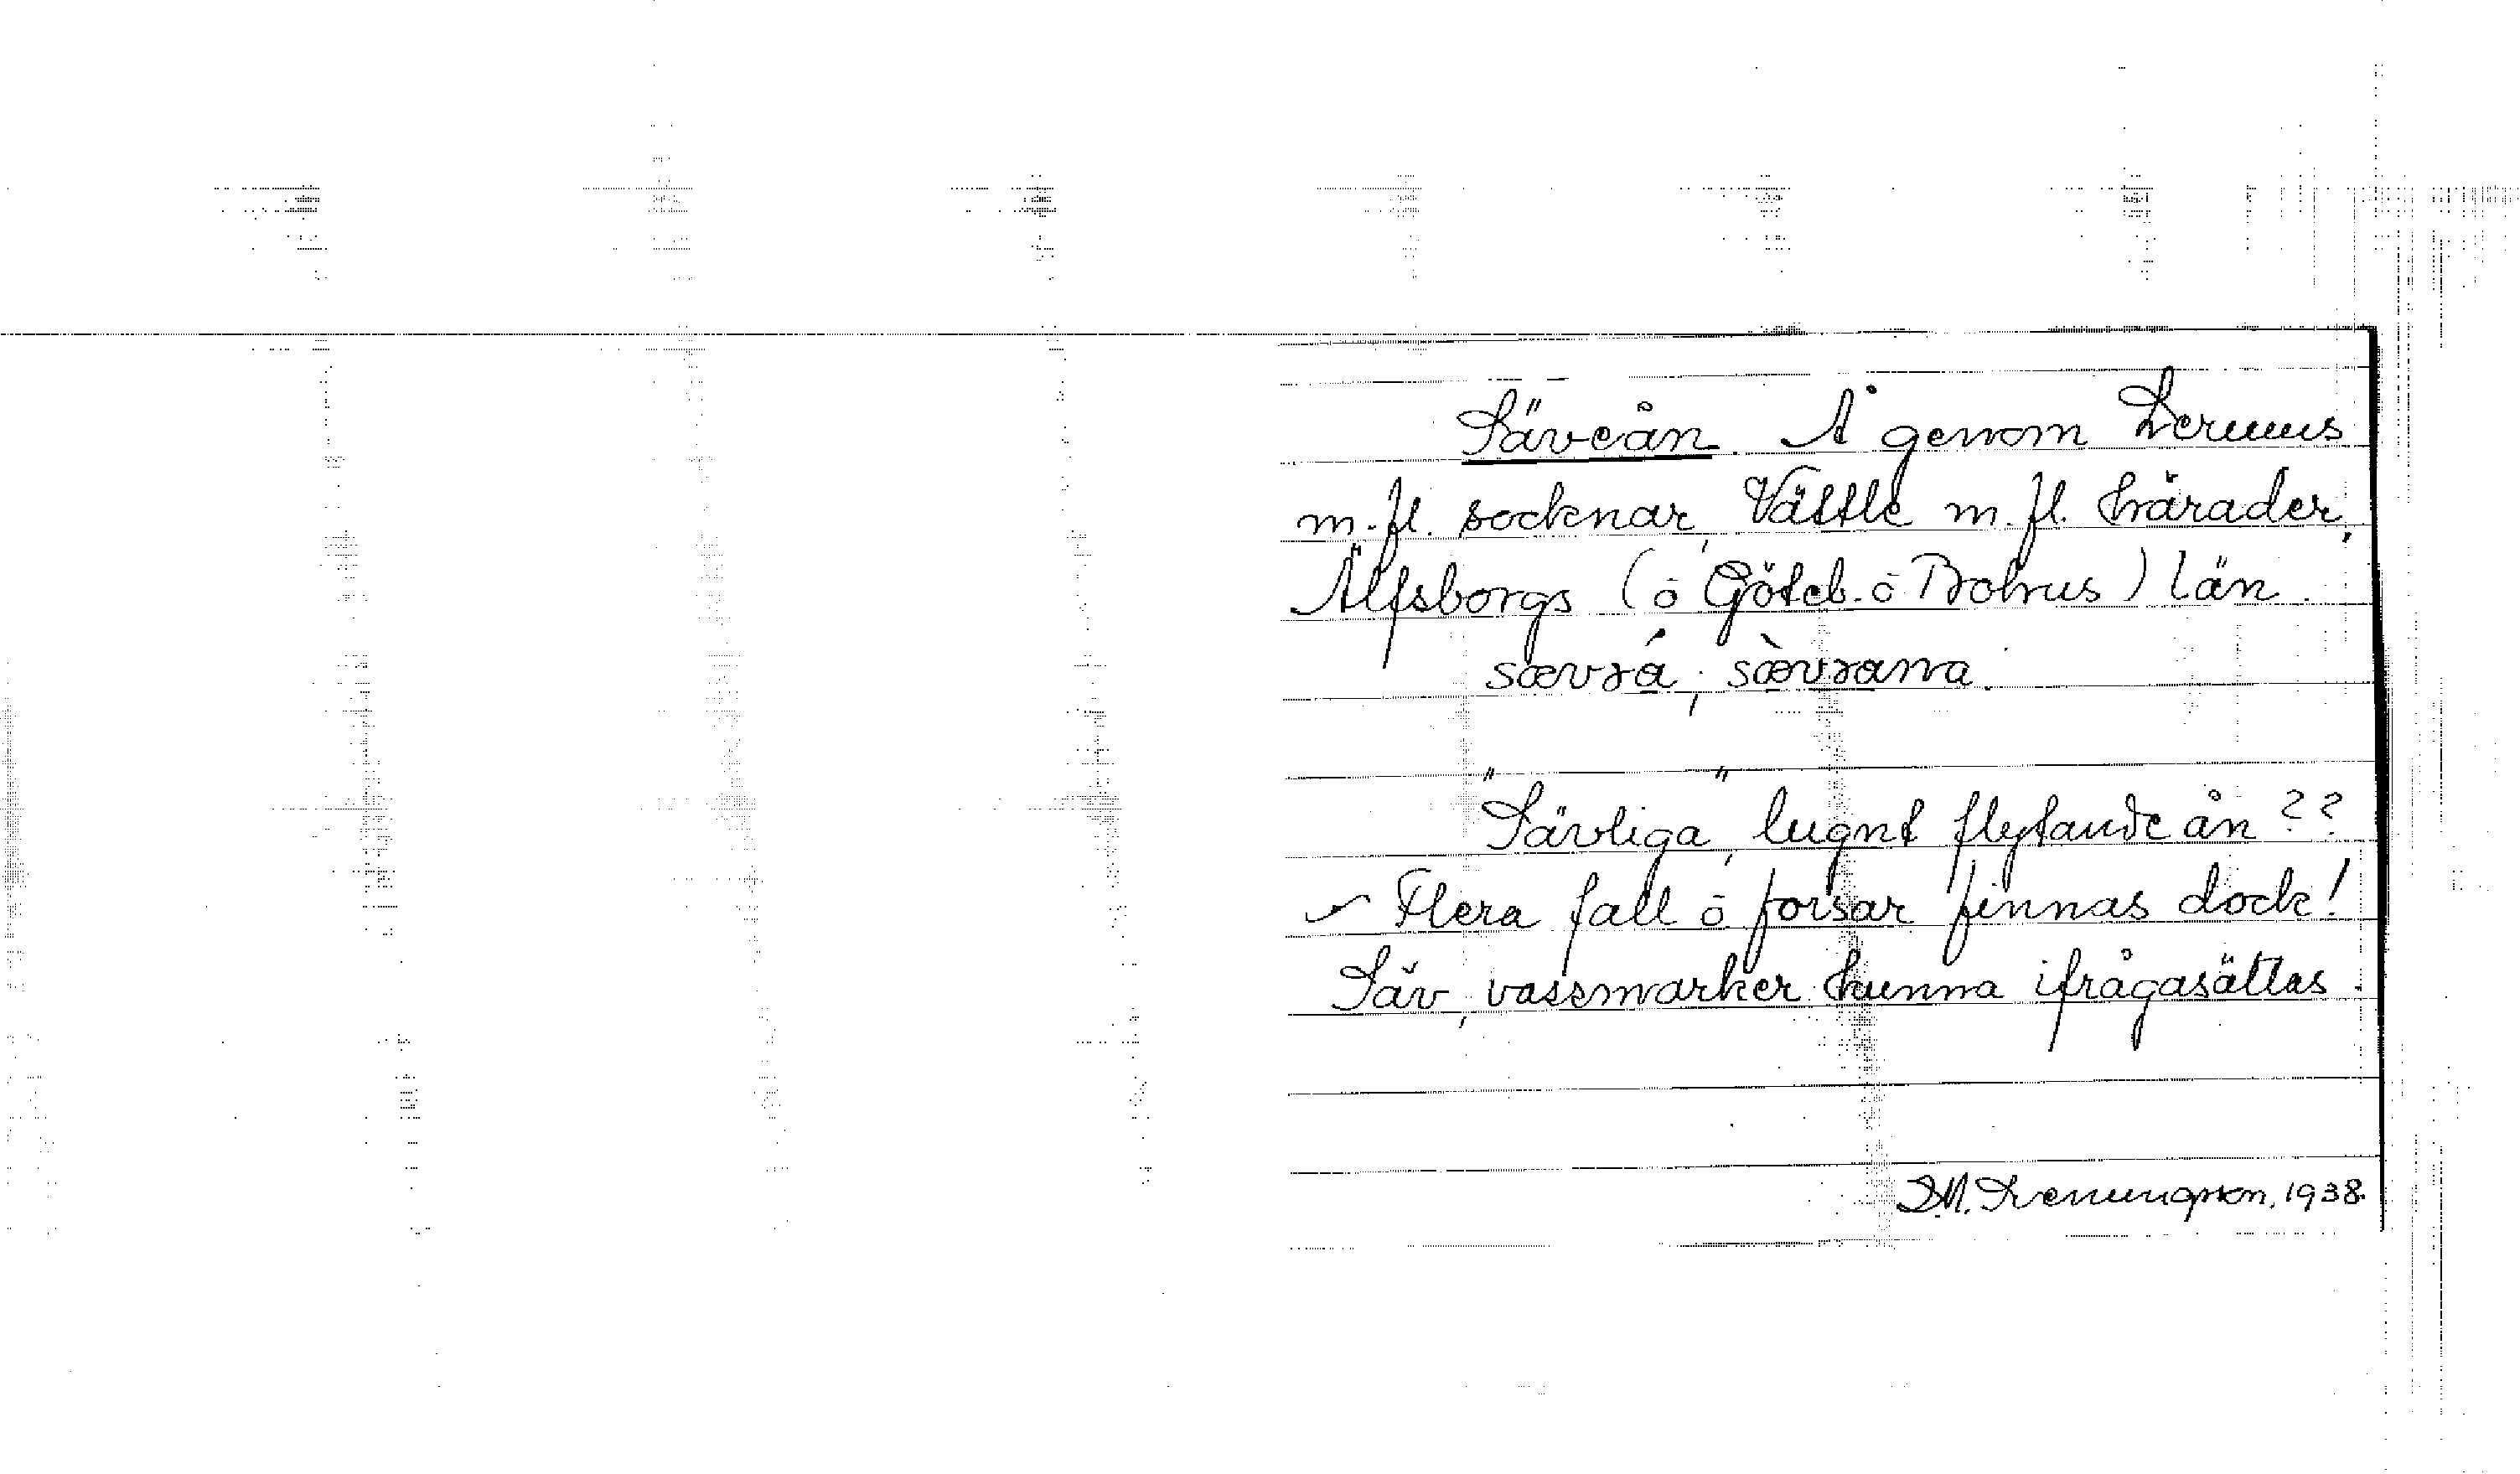 Säveån. Å genom Lerums
m.fl. socknar, Vättle m.fl. härader,
Älfsborgs (ō Göteb. ō Bohus) län.
sævɜá; sævɜana.
"   "
Sävliga, lugnt flytande ån??
Flera fall ō forsar finnas dock!
Säv, vassmarker kunna ifrågasättas.
1938.